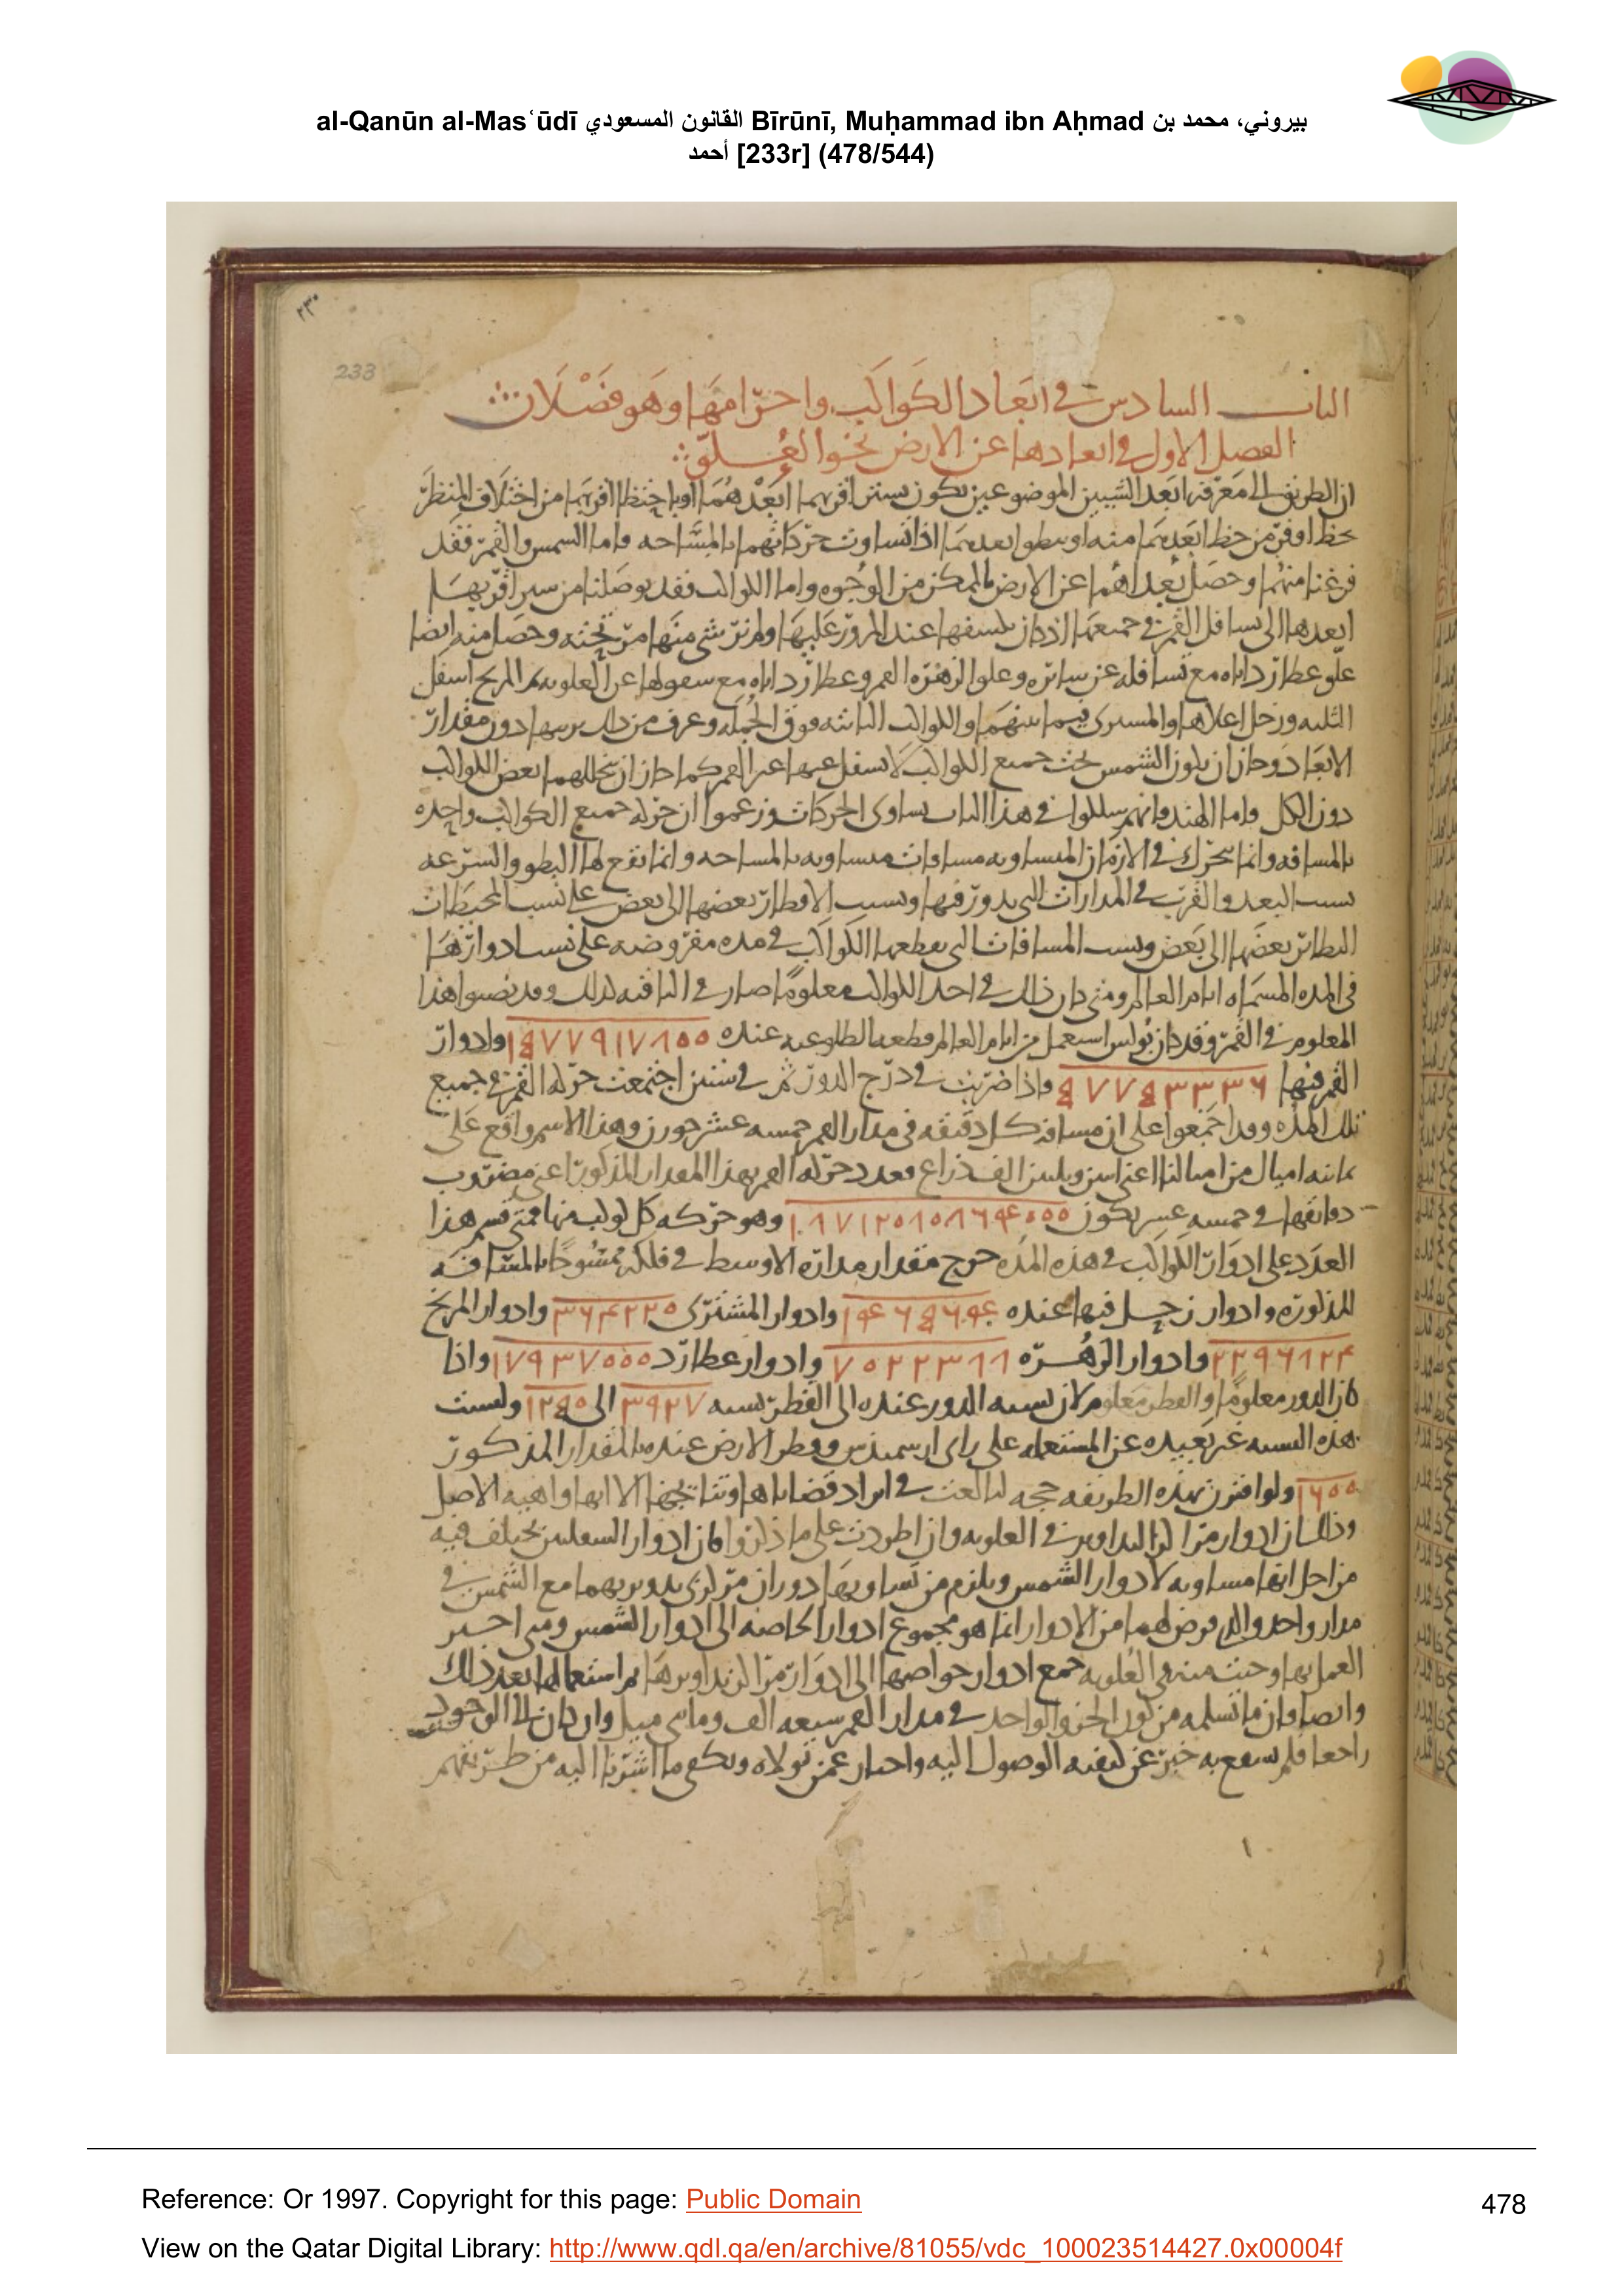 al-Qanūn al-Masʿūdī القانون المسعودي Bīrūnī, Muḥammad ibn Aḥmad بيروني، محمد بن
أحمد [233r] (478/544)
٢٣٠
233
الباب السادس في ابعاد الكواكب واجرامها وهو فصلان
الفصل الاول في ابعادها عن الارض نحو العلو
ان الطريق الى معرفه ابعد الشيين الموضوعين يكون بستر اقربهما ابعدهما او باحتظا اقربهما من اختلاف المنظر
حظا اوفر من حظ ابعدهما منه او ببطو ابعدهما اذا تساوت حركاتهما بالمساحه واما الشمس والقمر فقد
فرغنا منهما وحصل بعداهما عن الارض بالممكن من الوجوه واما الكواكب فقد توصلنا من ستر اقربها
ابعدها الى تسافل القمر في جميعها اذ كان يكسفها عند المرور عليها ولم نر شي منها مر تحته وحصل منه ايضا
علو عطارد اياه مع تسافله عن سائره وعلو الزهره القمر وعطارد اياه مع سفولها عن العلويه ثم المريخ اسفل
الثلثه وزحل اعلاها والمشترى فيما بينهما والكواكب الثابته فوق الجمله وعرف من ذلك ترتيبها دون مقدار
الابعاد وجاز ان يكون الشمس تحت جميع الكواكب لا يسفل عنها غير القمر كما جاز ان يتخللهما بعض الكواكب
دون الكل واما الهند فانهم سلكوا في هذا الباب تساوى الحركات وزعموا ان حركه جميع الكواكب واحده
بالمسافه وانما تتحرك في الازمان المتساويه مسافات متساويه بالمساحه وانما تقع لها البطو والسرعه
بسبب البعد والقرب في المدارات التي يدور فيها ونسب الاقطار بعضها الى بعض على نسب المحيطات
النظائر بعضها الى بعض ونسب المسافات التي يقطعها الكواكب في مده مفروضه على نسب ادوارها
في المده المسماه ايام العالم ومتى كان ذلك في احد الكواكب معلوما صار في الباقيه كذلك وقد نصبوا هذا
المعلوم في القمر وقد كان بولس استعمل من ايام العالم قطعه الطلوعيه عنده ١٥٧٧٩١٧٨٠٠ وادوار
القمر فيها ٥٧٧٥٣٣٣٦ واذا ضربت في درج الدور ثم في ستين اجتمعت حركه القمر في جميع
تلك المده وقد اجمعوا على ان مسافه كل دقيقه في مدار القمر خمسه عشر جوزن وهذا الاسم واقع على
ثمانيه اميال من اميالنا اعنى اثنين وثلثين الف ذراع فعدد حركه القمر بهذا المقدار المذكور اعنى مضروب
دقائقها في خمسه عشر يكون ١٨٧١٢٠٨٠٨٦٤٠٠٠ وهو حركه كل كوكب منها فمتى قسم هذا
العدد على ادوار الكواكب في هذه المده خرج مقدار مداره الاوسط في فلكه ممسوحا بالمسافه
المذكوره وادوار زحل فيها عنده ١٤٦٥٦٤ وادوار المشترى ٣٦٤٢٢٠ وادوار المريخ
٢٢٩٦٨٢٤ وادوار الزهره ٧٠٢٢٣٨٨ وادوار عطارد ١٧٩٣٧٠٠٠ واذا
كان الدور معلوما والقطر معلوم لان نسبه الدور عنده الى القطر نسبه ٣٩٢٧ الى ١٢٥٠ وليست
هذه النسبه غير بعيده عن المستعمله على راى ارسميدس وقطر الارض عنده بالمقدار المذكور
١٦٠٠ ولو اقترن بهذه الطريقه حجه لبالغت في ايراد قضاياها ونتائجها الا انها واهيه الاصل
وذلك ان ادوار مراكز التداوير في العلويه وان اطردت على ما ذكروا فان ادوار السفليين يختلف فيه
من اجل انها مساويه لادوار الشمس ويلزم من تساويها دوران مركزى تدويريهما مع الشمس في
مدار واحد والذي فرض لهما من الادوار انما هو مجموع ادوار الخاصه الى ادوار الشمس ومتى احسر
العمل بها وجبت منه في العلويه جمع ادوار خواصها الى ادوار مراكز تداويرها ثم استعمالها بعد ذلك
وايضا فان ما تسلمه من كون الجزو الواحد في مدار القمر سبعه الف ومائتي ميل وان كان الى الوجود
راجعا فلم يسمع به خبر عن كيفيه الوصول اليه واخبار عمن تولاه ونكتفي ما اشرنا اليه من طريقهم
Reference: Or 1997. Copyright for this page: Public Domain
478
View on the Qatar Digital Library: http://www.qdl.qa/en/archive/81055/vdc_100023514427.0x00004f